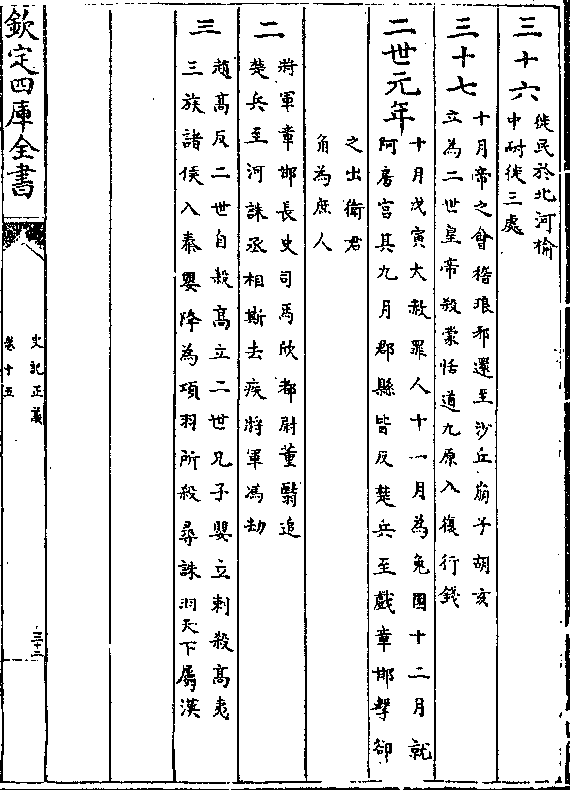 三十六
徙民於北河榆
中耐徙三處
三十七
十月帝之會稽琅邪還至沙丘崩子胡亥
立為二世皇帝殺蒙恬道九原入復行錢
二世元年
十月戊寅大赦罪人十一月為兔園十二月就
阿房宫其九月郡縣皆反楚兵至戲章邯擊卻
之出衛君
角為庶人
二
將軍章邯長史司馬欣都尉董翳追
楚兵至河誅丞相斯去疾將軍馮劫
三
趙髙反二世自殺髙立二世兄子嬰立刺殺髙夷
三族諸侯入秦嬰降為項羽所殺尋誅羽天下屬漢
欽定四庫全書
史記正義
卷十五
三十二